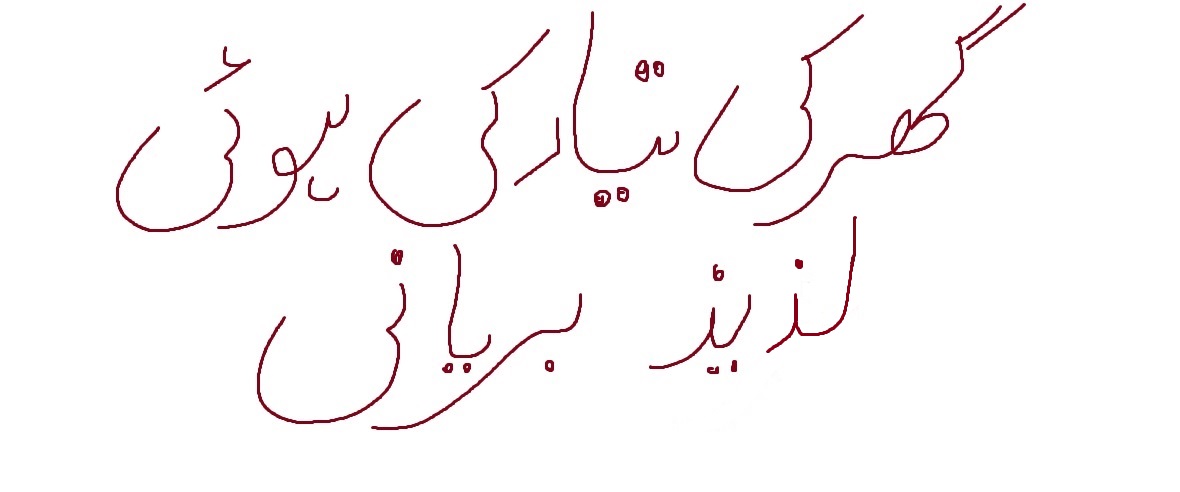 گھر کی تیار کی ہوئی
لذیذ بریانی